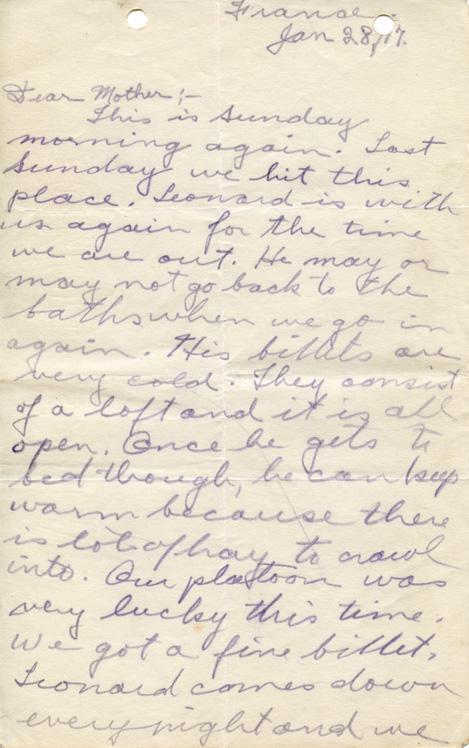 France.
Jan 28/17.
Dear Mother;-
This is Sunday
morning again. Last
Sunday we hit this
place. Leonard is with
us again for the time
we are out. He may or
may not go back to the
baths when we go in
again. His billets are
very cold. They consist
of a loft and it is all
open. Once he gets to
bed though, he can keep
warm because there
is lots of hay to crawl
into. Our platoon was
very lucky this time.
We got a fine billet.
Leonard comes down
every night and we